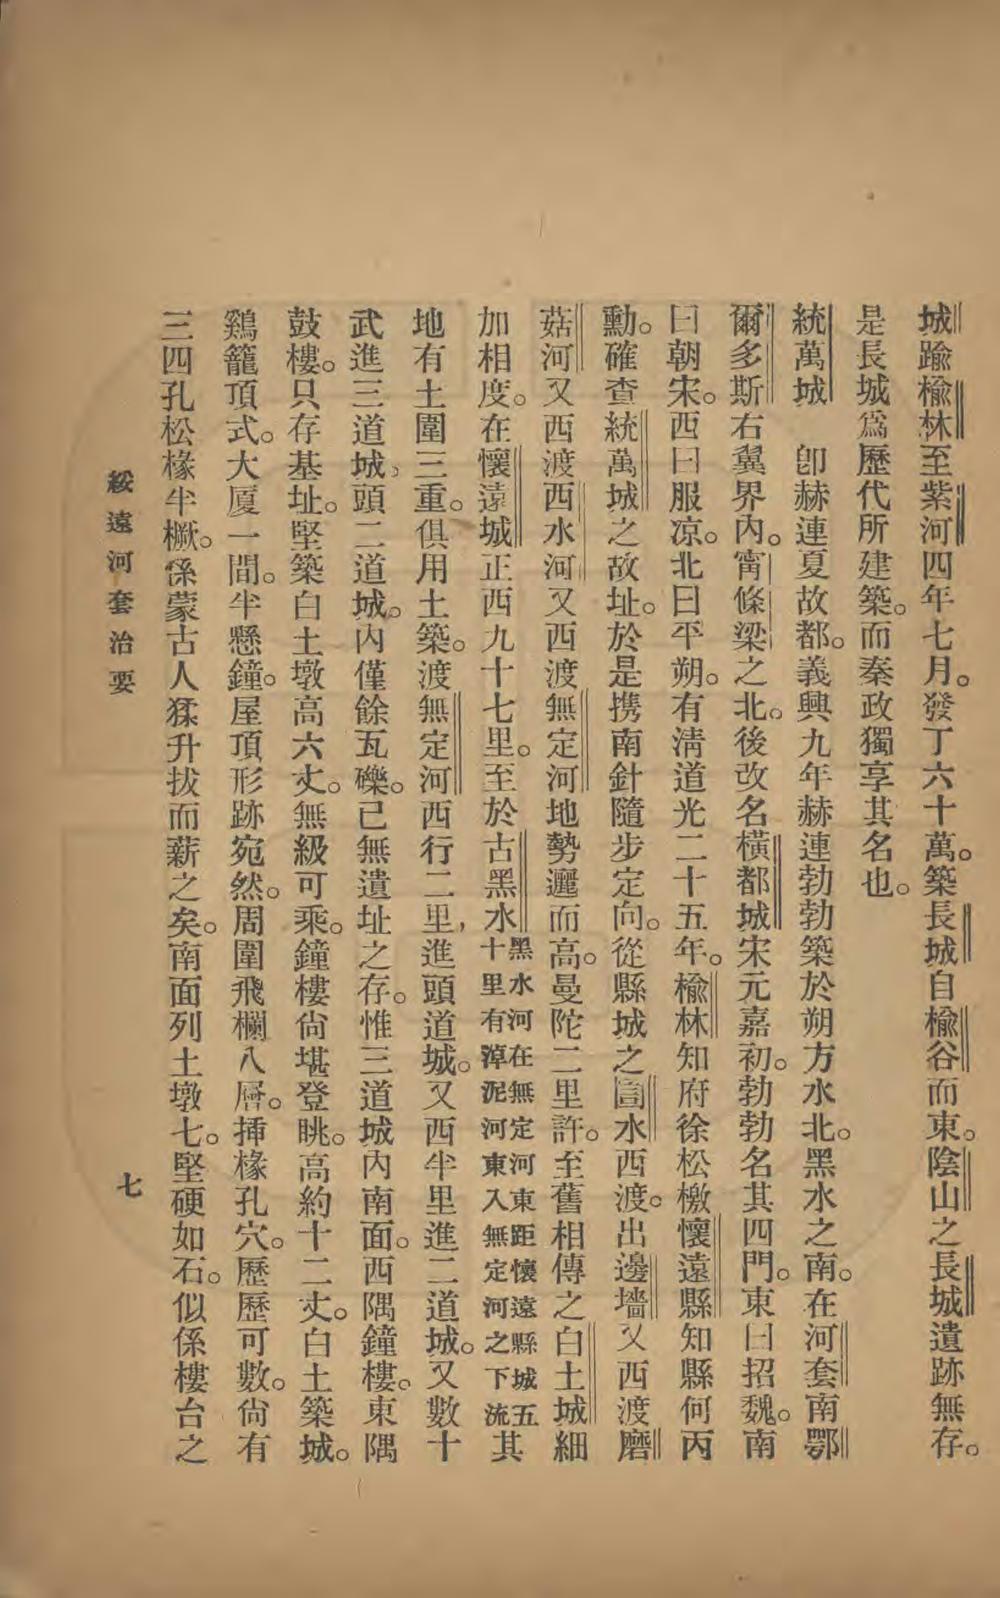 城踰楡林至紫河四年七月。發丁六十萬。築長城自楡谷而東。陰山之長城遺跡無存。
是長城爲歷代所建築。而秦政獨享其名也。
統萬城　卽赫連夏故都。義興九年赫連勃勃築於朔方水北。黑水之南。在河套南鄂
爾多斯右翼界內。甯條梁之北。後改名橫都城宋元嘉初。勃勃名其四門。東曰招魏。南
曰朝宋。西曰服凉。北曰平朔。有淸道光二十五年。楡林知府徐松檄懷遠縣知縣何丙
勳。確查統萬城之故址。於是携南針隨步定向。從縣城之圁水西渡。出邊墻又西渡磨
菇河又西渡西水河又西渡無定河地勢邐而高。曼陀二里許。至舊相傳之白土城細
加相度。在懷遠城正西九十七里。至於古黑水黑水河在無定河東距懷遠縣城五十里有淖泥河東入無定河之下流其
地有土圍三重。俱用土築。渡無定河西行二里,進頭道城。又西半里進二道城。又數十
武進三道城,頭二道城。內僅餘瓦礫。已無遺址之存。惟三道城內南面。西隅鐘樓。東隅
鼓樓。只存基址。堅築白土墩高六丈。無級可乘。鐘樓尙堪登眺。高約十二丈。白土築城。
鷄籠頂式。大厦一間。半懸鐘。屋頂形跡宛然。周圍飛欄八層。揷椽孔穴。歷歷可數。尙有
三四孔松椽半橛。係蒙古人猱升拔而薪之矣。南面列土墩七。堅硬如石。似係樓台之
綏遠河套治要
七